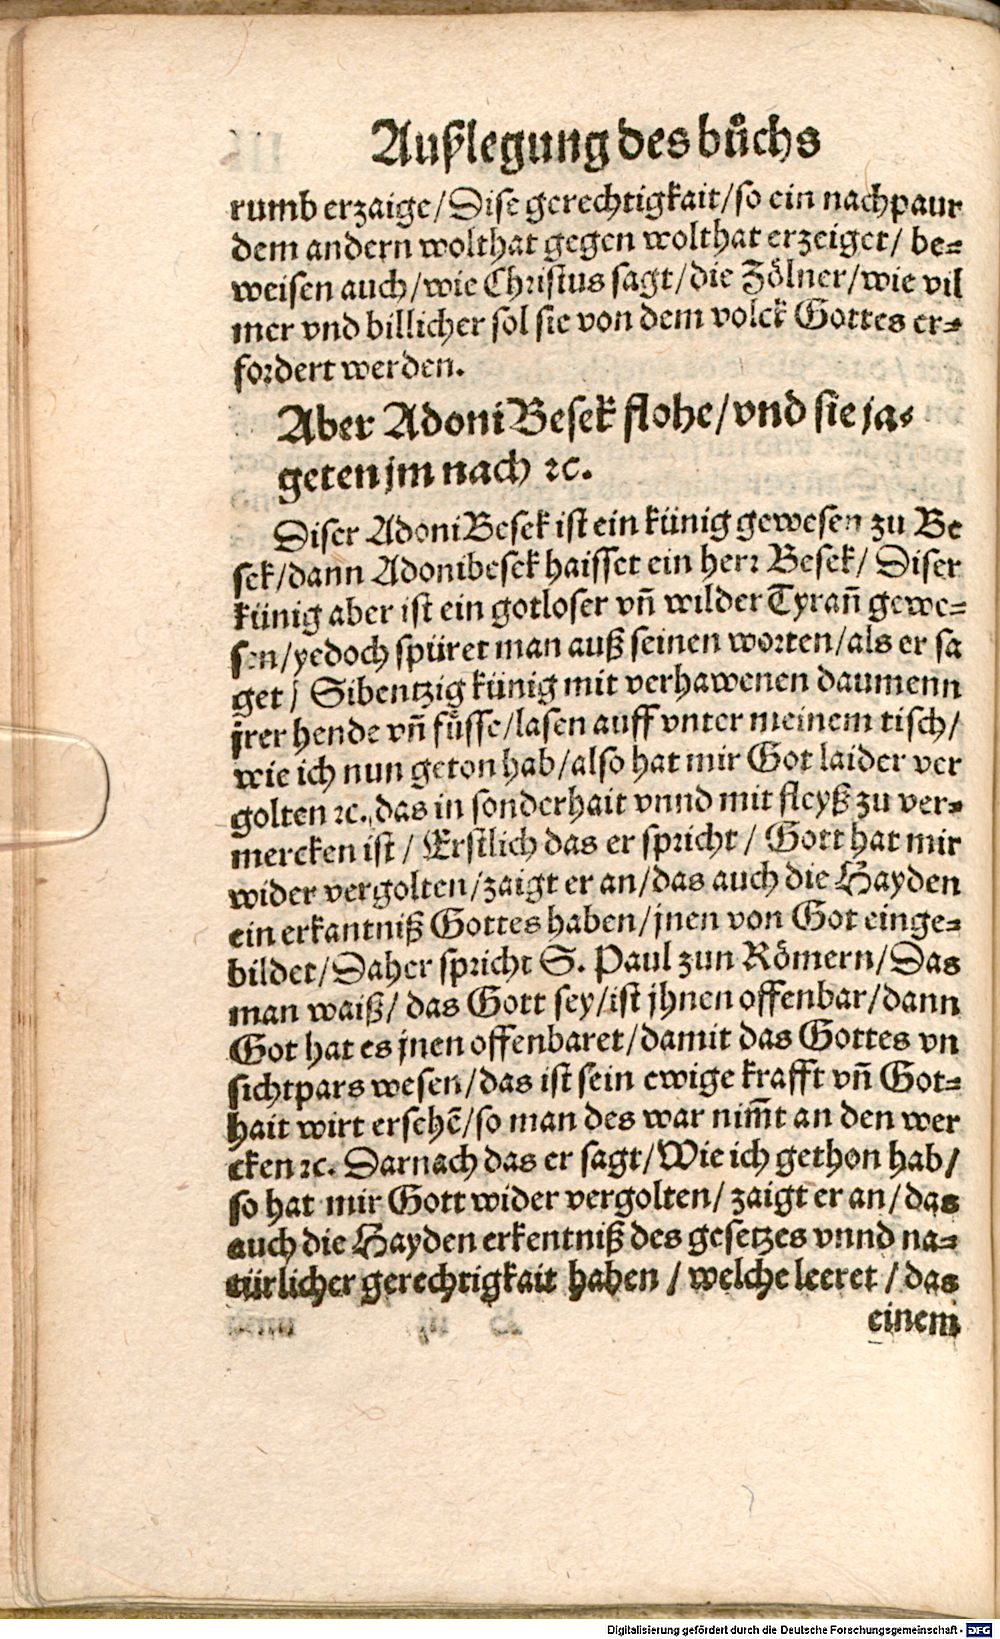 Außlegung des bůchs
rumb erzaige/Dise gerechtigkait/so ein nachpaur
dem andern wolthat gegen wolthat erzeiget/ be⸗
weisen auch/wie Christus sagt/die Zölner/wie vil
mer vnd billicher sol sie von dem volck Gottes er⸗
fordert werden.
Aber Adoni Besek flohe/vnd sie ja⸗
geten jm nach ꝛc.
Diser Adoni Besek ist ein künig gewesen zu Be
sek/dann Adonibesek haisset ein herr Besek/ Diser
künig aber ist ein gotloser vñ wilder Tyrañ gewe⸗
sen/yedoch spüret man auß seinen worten/als er sa
get/ Sibentzig künig mit verhawenen daumenn
jrer hende vñ fůsse/lasen auff vnter meinem tisch/
wie ich nun geton hab/also hat mir Got laider ver
golten ꝛc. das in sonderhait vnnd mit fleyß zu ver⸗
mercken ist / Erstlich das er spricht / Gott hat mir
wider vergolten/zaigt er an/das auch die Hayden
ein erkantniß Gottes haben/jnen von Got einge⸗
bildet/Daher spricht S. Paul zun Römern/Das
man waiß/ das Gott sey/ist jhnen offenbar/dann
Got hat es jnen offenbaret/damit das Gottes vn
sichtpars wesen/das ist sein ewige krafft vñ Got⸗
hait wirt ersehẽ/so man des war nim̃t an den wer
cken ꝛc. Darnach das er sagt/Wie ich gethon hab/
so hat mir Gott wider vergolten/ zaigt er an/das
auch die Hayden erkentniß des gesetzes vnnd na⸗
türlicher gerechtigkait haben / welche leeret / das
einem
Digitalisierung gefördert durch die Deutsche Forschungsgemeinschaft - DFG